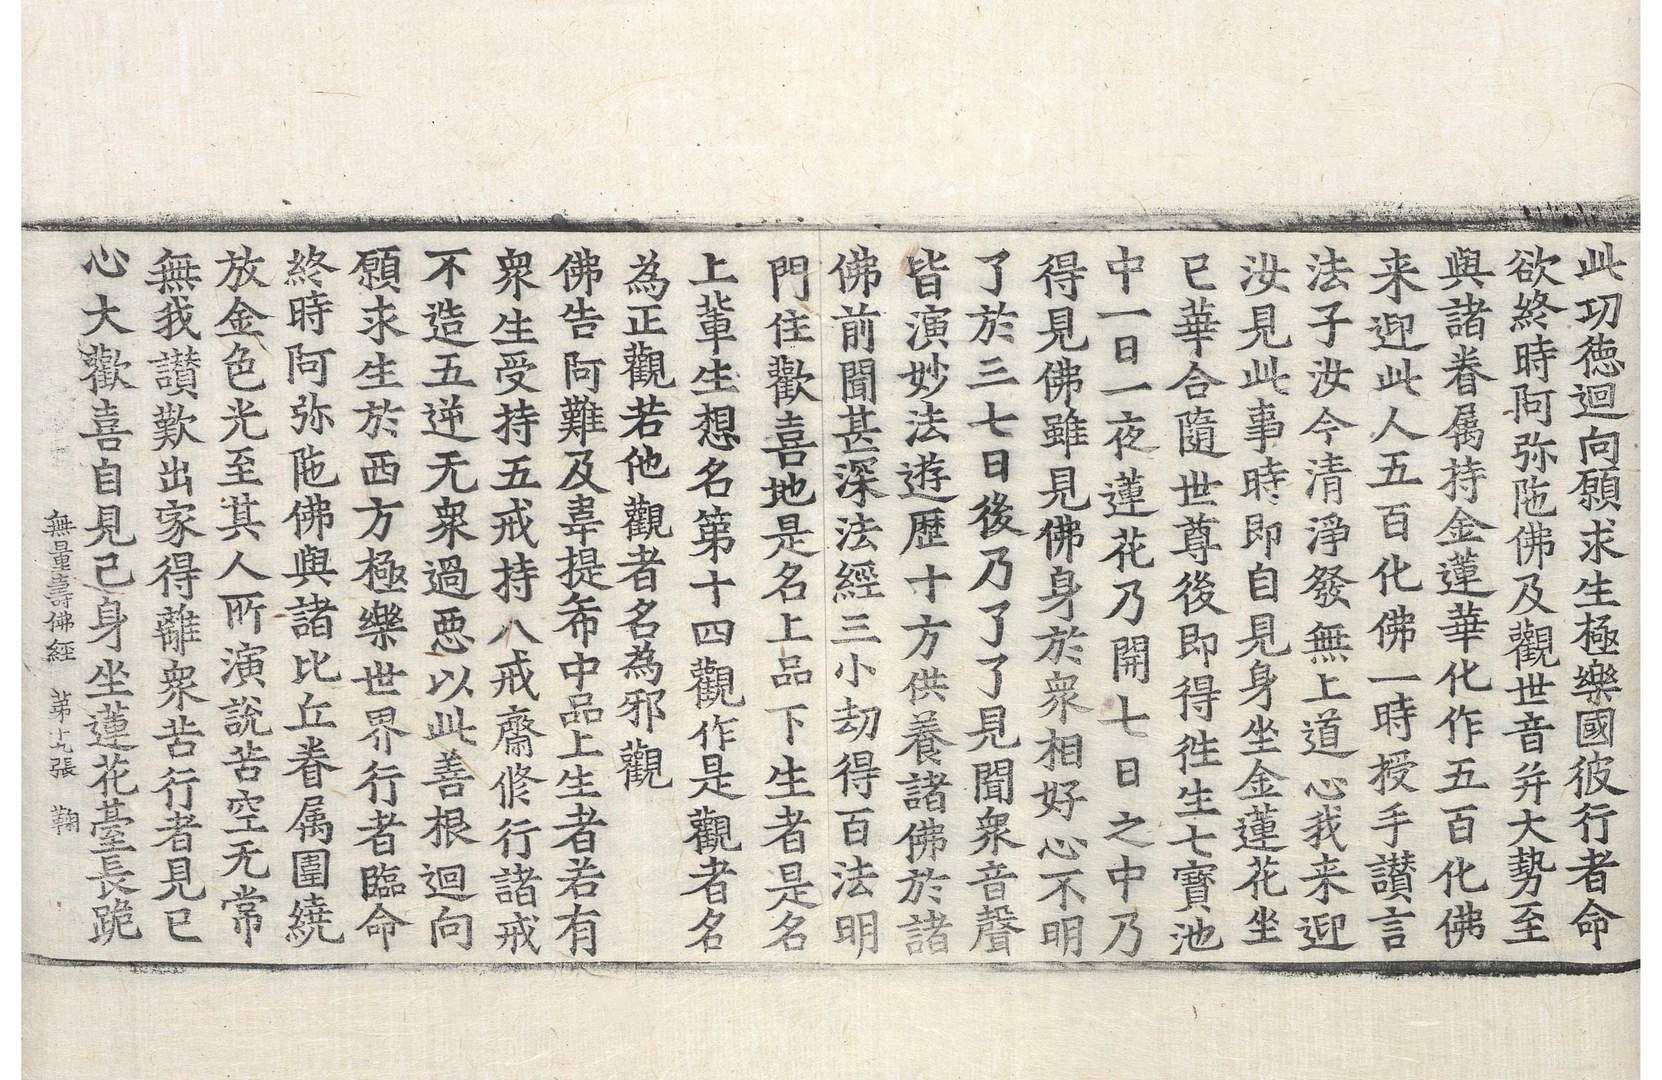 此功徳迴向願求生極樂國彼行者命
欲終時阿弥陁佛及觀世音并大勢至
與諸眷属持金蓮華化作五百化佛
来迎此人五百化佛一時授手讃言
法子汝今清淨發無上道心我来迎
汝見此事時即自見身坐金蓮花坐
已華合隨世尊後即得徃生七寶池
中一日一夜蓮花乃開七日之中乃
得見佛雖見佛身於衆相好心不明
了於三七日後乃了了見聞衆音聲
皆演妙法遊歴十方供養諸佛於諸
佛前聞甚深法經三小劫得百法明
門住歡喜地是名上品下生者是名
上軰生想名第十四觀作是觀者名
為正觀若他觀者名為邪觀
佛告阿難及韋提希中品上生者若有
衆生受持五戒持八戒齋修行諸戒
不造五逆无衆過惡以此善根迴向
願求生於西方極樂世界行者臨命
終時阿弥陁佛與諸比丘眷属圍繞
放金色光至其人所演說苦空无常
無我讃歎出家得離衆苦行者見已
心大歡喜自見己身坐蓮花臺長跪
無量壽佛經 第 張